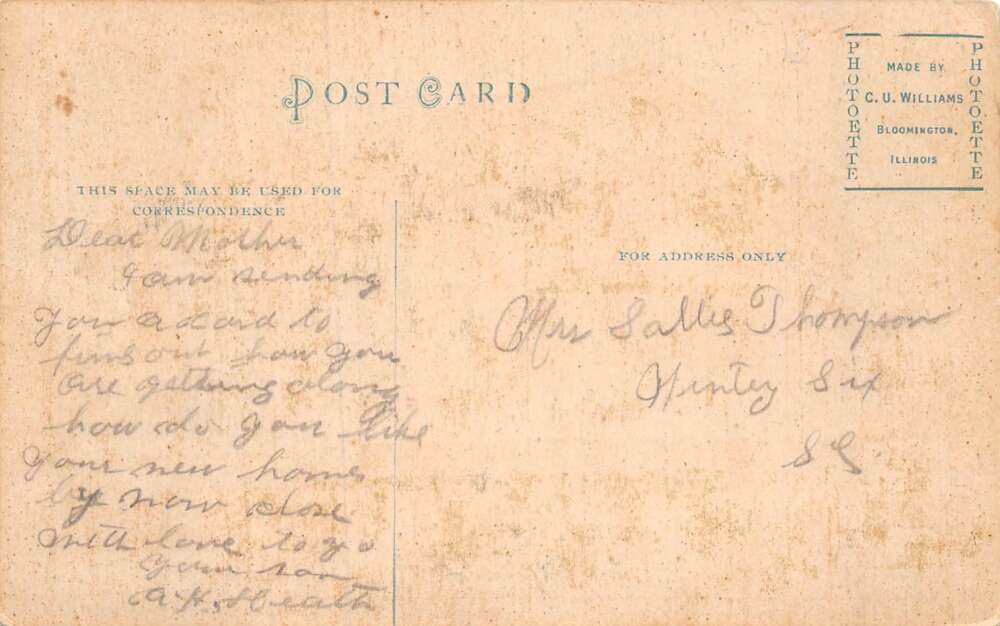 POST CARD
PHOTOETTE
MADE BY
C. U. WILLIAMS
BLOOMINGTON,
ILLINOIS
PHOTOETTE
THIS SPACE MAY BE USED FOR
CORRESPONDENCE
FOR ADDRESS ONLY
Dear Mother
I am sending
you a card to
find out how you
are getting along
how do you like
your new home
by now close
with love to yo
your son
A. H. Heath
Mrs Sallie Thompson
Ninety Six
S C